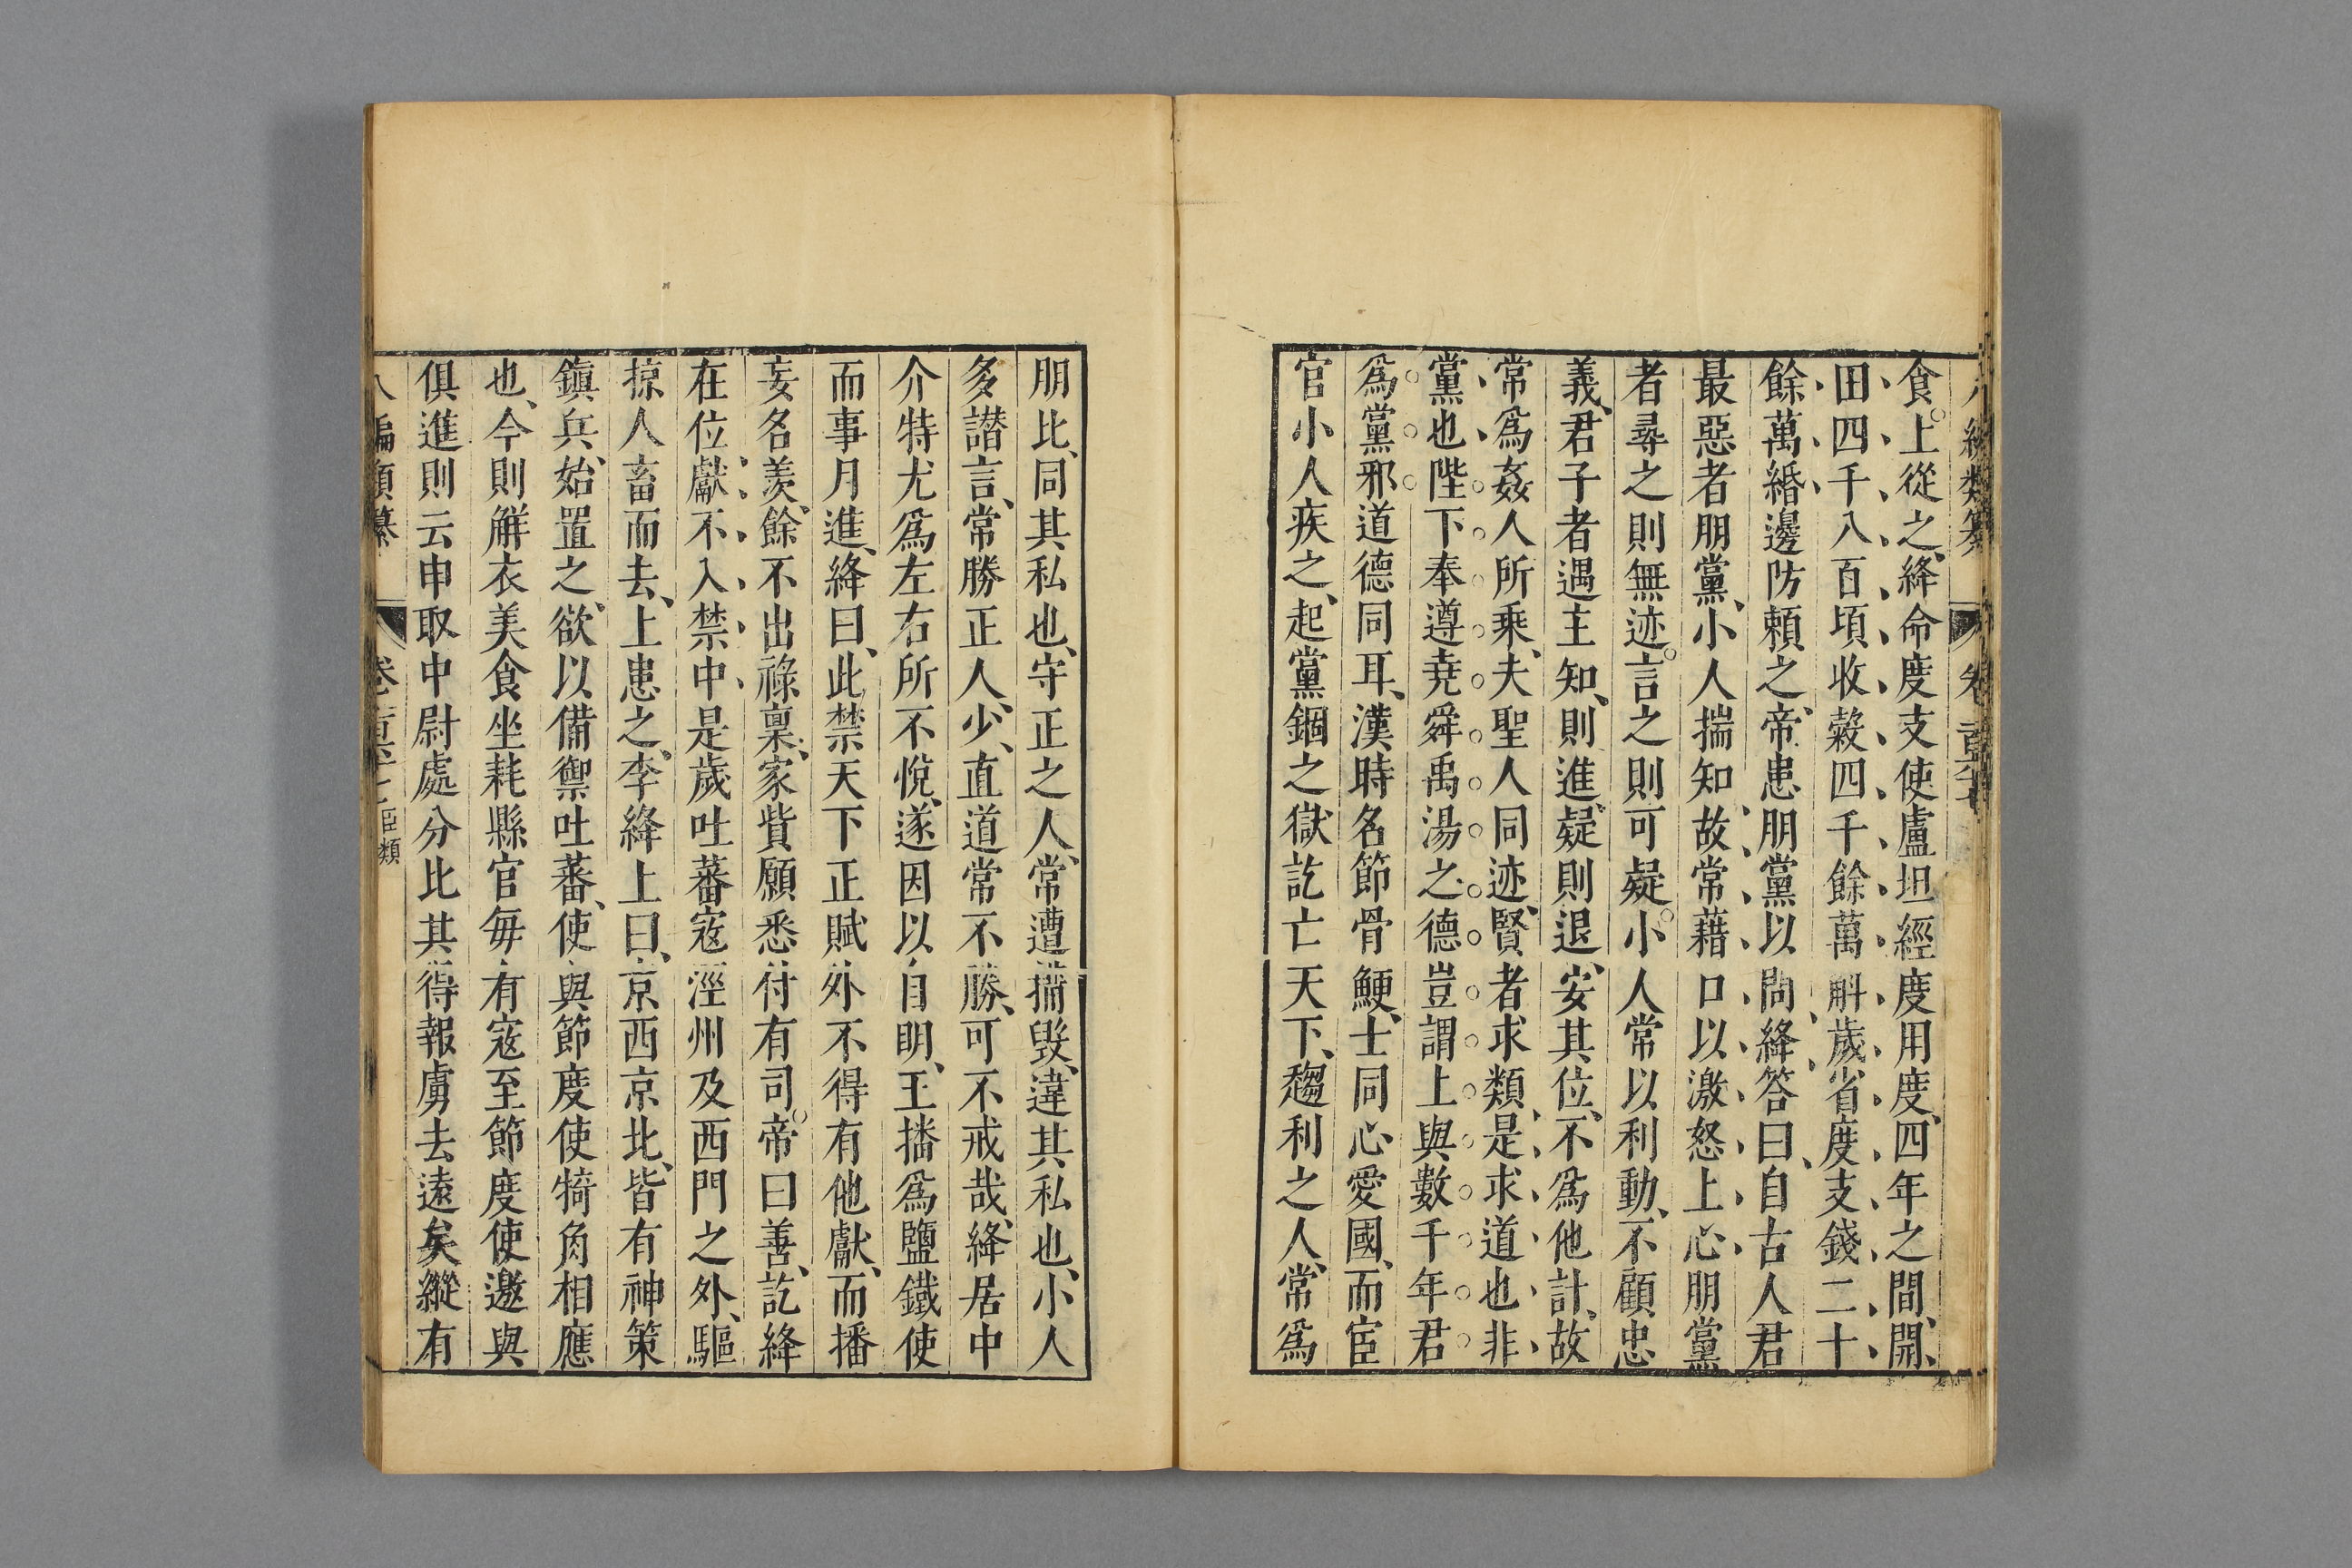 食。上從之、絳命度支使盧坦經度用度、四年之間、開
田四千八百頃收穀四千餘萬斛歲省度支錢二十
餘萬緡邊防賴之、帝患朋黨以問絳答曰、自古人君
最惡者朋黨、小人揣知故常藉口以激怒上心朋黨
者尋之則無迹。言之則可疑。小人常以利動、不顧忠
義、君子者遇主知、則進、疑則退、安其位、不爲他計、故
常爲姦人所乘、夫聖人同迹、賢者求類是求道也非
黨也陛下奉遵堯舜禹湯之德豈謂上與數千年君
爲黨邪道德同耳、漢時名節骨鯁、士同心愛國、而宦
官小人疾之、起黨錮之獄訖亡天下、趨利之人、常爲
朋比、同其私也、守正之人、常遭搆毀、違其私也、小人
多譛言、常勝正人、少、直道常不勝、可不戒哉、絳居中
介特尤爲左右所不悅、遂因以自明、王播爲鹽鐵使
而事月進、絳曰、此禁天下正賦外不得有他獻、而播
妄名羨、餘不出祿稟、家貲願悉付有司。帝曰善、訖絳
在位獻不入禁中是歲吐蕃寇涇州及西門之外、驅
掠人畜而去、上患之、李絳上曰、京西京北、皆有神策
鎮兵、始置之、欲以備禦吐蕃、使與節度使犄角相應
也、今則解衣美食坐耗縣官每有寇至節度使邀與
俱進則云申取中尉處分比其得報虜去遠矣縱有